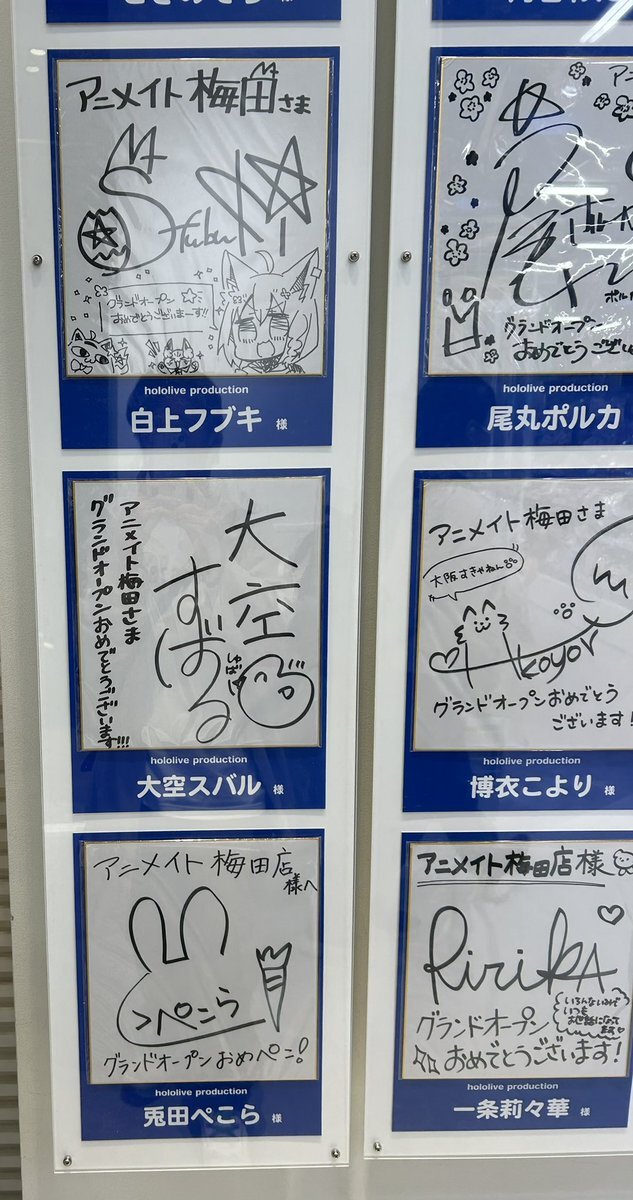 アニメイト梅田さま
Fubuki
グランドオープン☆
おめでとうございまーす!!
hololive production
白上フブキ 様
アニメイト梅田さま
グランドオープンおめでとうございます!!!
大空
すばる
しゅばっ
hololive production
大空スバル 様
アニメイト梅田店
様へ
>ぺこら
グランドオープンおめぺこ!
hololive production
兎田ぺこら 様
グランドオープン
おめでとうござい
hololive production
尾丸ポルカ
アニメイト梅田さま
大阪すきやねん
koyori
グランドオープンおめでとう
ございます!
hololive production
博衣こより 様
アニメイト梅田店様
RiriKA
いろんないみで
いつも
お世話になって
ます
グランドオープン
おめでとうございます!
hololive production
一条莉々華 様